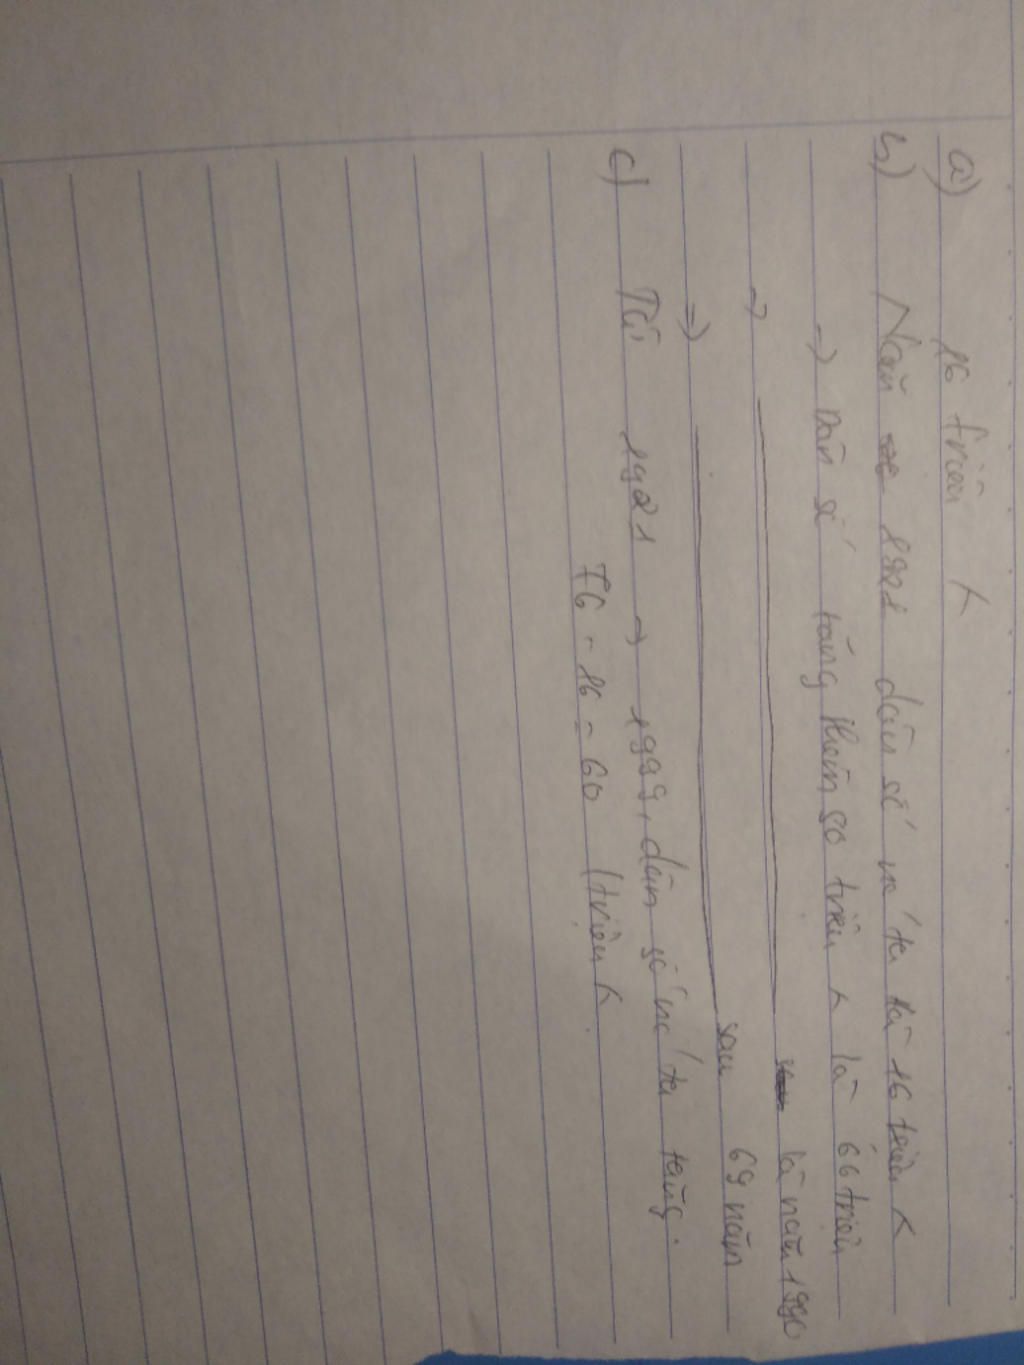 a) 16 triệu
b) Năm 1921 dân số nc' ta là 16 triệu
→ Dân số tăng thêm 50 triệu là 66 triệu
→ là năm 1990
⇒ sau 69 năm
c) Từ 1921 → 1999, dân số nc' ta tăng.
76 - 16 = 60 (triệu